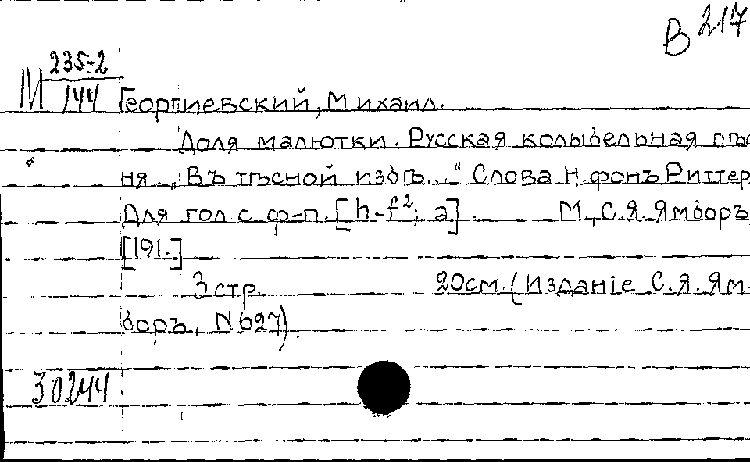 В 217
М 235-2
144 Георгиевский, Михаил.
Доля малютки. Русская колыбельная пѣс
ня „Въ тѣсной избѣ..." Слова Н. фонъ Риттер
Для гол с ф-п. [h-f²; a] М., С.Я. Ямборъ,
[191.]
3 стр. 20см. (Изданіе С.Я. Ям-
боръ, N 627)
30244